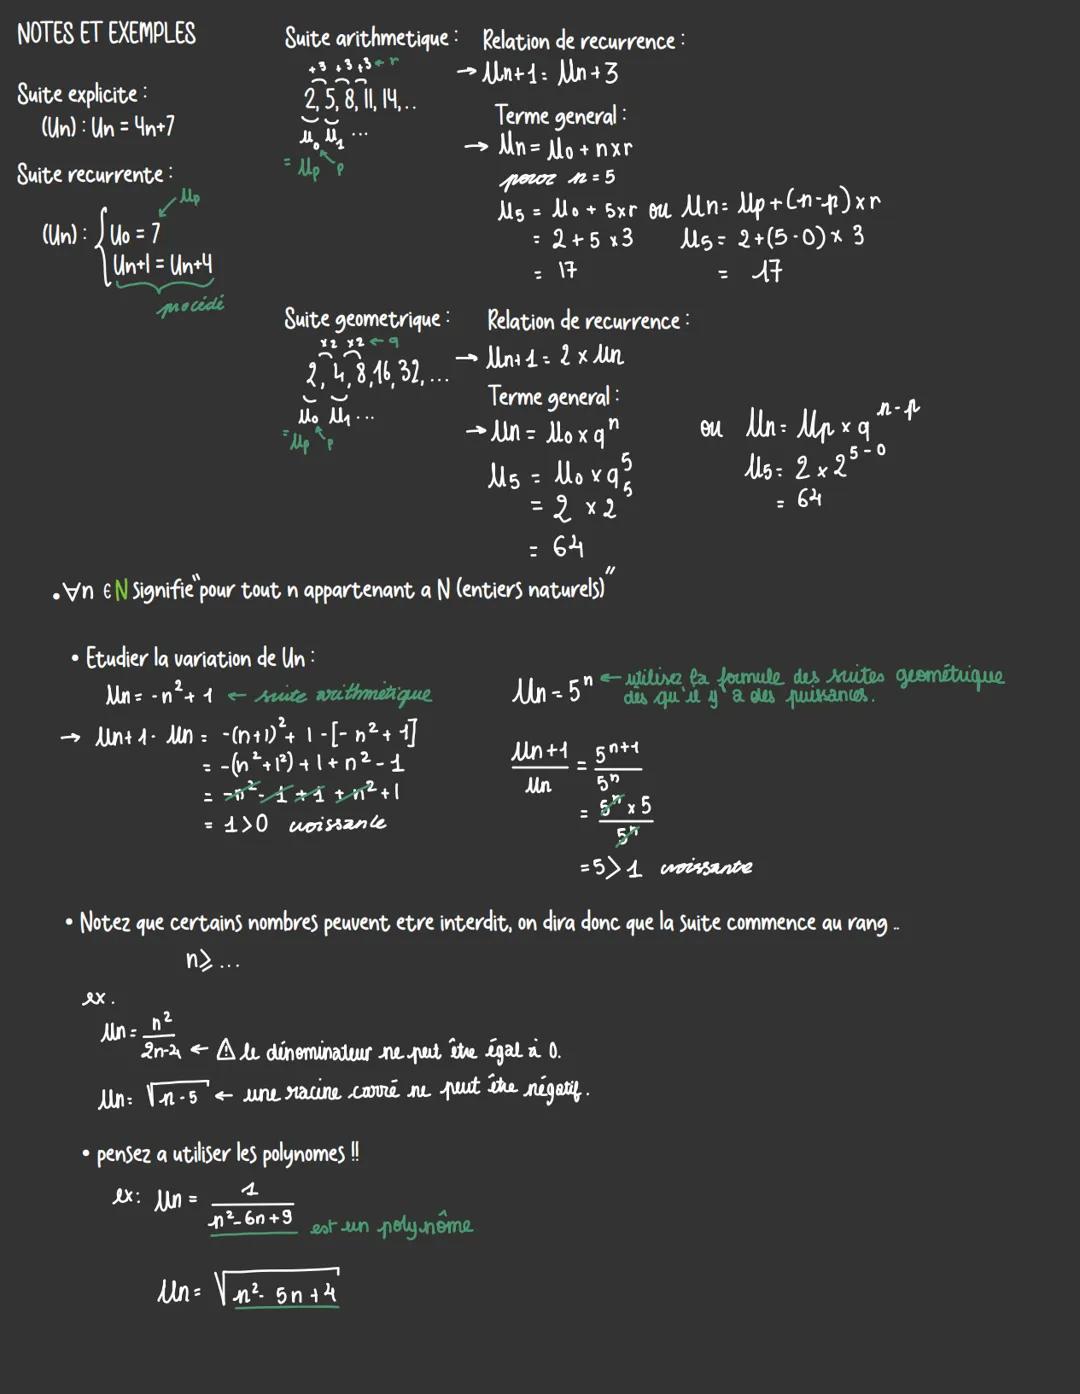 NOTES ET EXEMPLES
Suite explicite :
(Un) : Un = 4n+7
Suite recurrente :
Up
(Un) : { U0 = 7
Un+1 = Un+4
procédé
Suite arithmetique :
+3 +3 +3 ← r
2, 5, 8, 11, 14,..
U0 U1 ...
= Up p
Relation de recurrence :
→ Un+1 = Un+3
Terme general :
→ Un = U0 + n×r
pour n = 5
U5 = U0 + 5×r ou Un = Up+(n-p)×r
= 2+5×3 U5 = 2+(5-0)×3
= 17 = 17
Suite geometrique :
×2 ×2 ← q
2, 4, 8, 16, 32, ...
U0 U1 ...
= Up p
Relation de recurrence :
→ Un+1 = 2 × Un
Terme general :
→ Un = U0 × qⁿ ou Un = Up × qⁿ⁻ᵖ
U5 = U0 × q⁵ U5 = 2 × 2⁵⁻⁰
= 2 × 2⁵ = 64
= 64
• ∀n ∈ N signifie "pour tout n appartenant a N (entiers naturels)"
• Etudier la variation de Un :
Un = -n²+1 ← suite arithmétique
→ Un+1 - Un = -(n+1)²+1-[-n²+1]
= -(n²+1²)+1+n²-1
= -n²-1+1+n²+1
= 1>0 croissante
Un = 5ⁿ ← utilisez la formule des suites geométrique
dès qu'il y'a des puissances.
Un+1/Un = 5ⁿ⁺¹/5ⁿ
= 5ⁿ×5/5ⁿ
= 5>1 croissante
• Notez que certains nombres peuvent etre interdit, on dira donc que la suite commence au rang ..
n⩾ ...
ex.
Un = n²/2n-4 ← ⚠ le dénominateur ne peut être égal à 0.
Un = √n-5 ← une racine carré ne peut être négatif.
• pensez a utiliser les polynomes !!
ex: Un = 1/n²-6n+9 est un polynôme
Un = √n²-5n+4